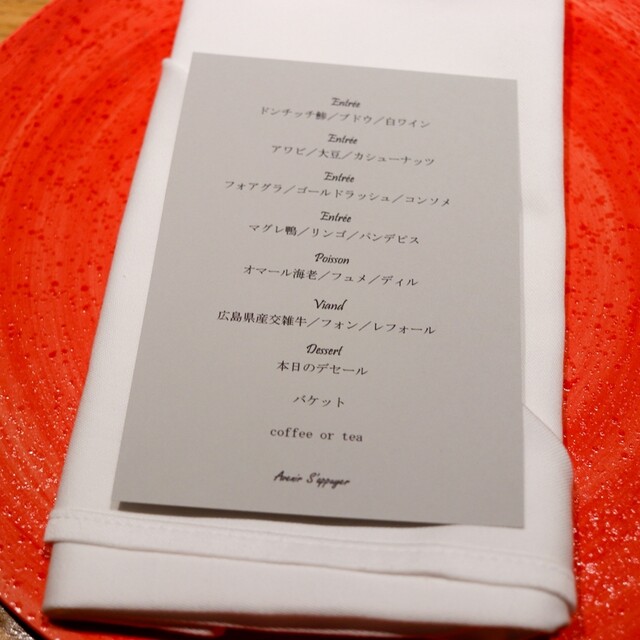 Entrée
ドンチッチ鯵／ブドウ／白ワイン
Entrée
アワビ／大豆／カシューナッツ
Entrée
フォアグラ／ゴールドラッシュ／コンソメ
Entrée
マグレ鴨／リンゴ／パンデピス
Poisson
オマール海老／フュメ／ディル
Viand
広島県産交雑牛／フォン／レフォール
Dessert
本日のデセール
バケット
coffee or tea
Avenir S'appuyer